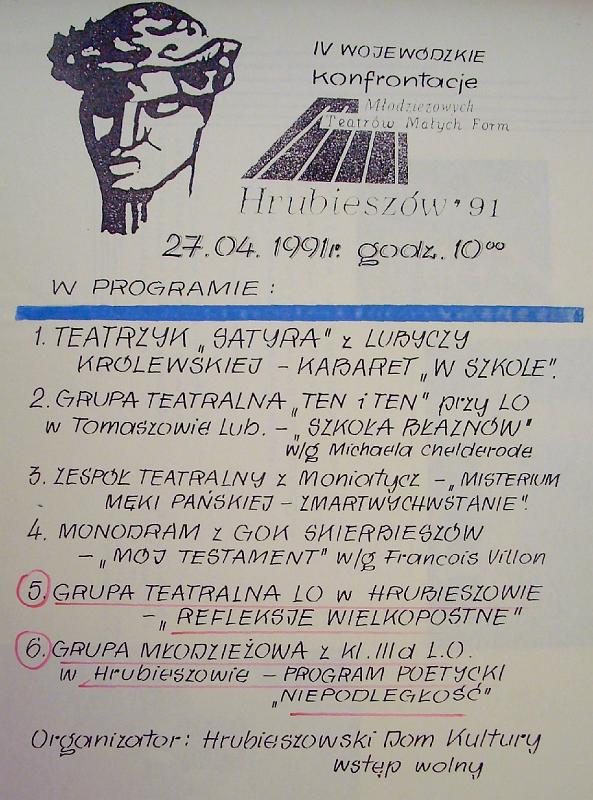 IV WOJEWÓDZKIE
Konfrontacje
Młodzieżowych
Teatrów Małych Form
Hrubieszów '91
27.04. 1991r. godz. 10⁰⁰
W PROGRAMIE :
1. TEATRZYK „SATYRA" z LUBYCZY
KRÓLEWSKIEJ – KABARET „W SZKOLE".
2. GRUPA TEATRALNA „TEN i TEN" przy LO
w Tomaszowie Lub. – „SZKOŁA BŁAZNÓW"
w/g Michaela Chelderode
3. ZESPÓŁ TEATRALNY z Moniatycz – „MISTERIUM
MĘKI PAŃSKIEJ – ZMARTWYCHWSTANIE".
4. MONODRAM z GOK SKIERBIESZÓW
– „MÓJ TESTAMENT" w/g Francois Villon
5. GRUPA TEATRALNA LO w HRUBIESZOWIE
– „REFLEKSJE WIELKOPOSTNE"
6. GRUPA MŁODZIEŻOWA z kl. III a L.O.
w Hrubieszowie – PROGRAM POETYCKI
„NIEPODLEGŁOŚĆ"
Organizator: Hrubieszowski Dom Kultury
wstęp wolny